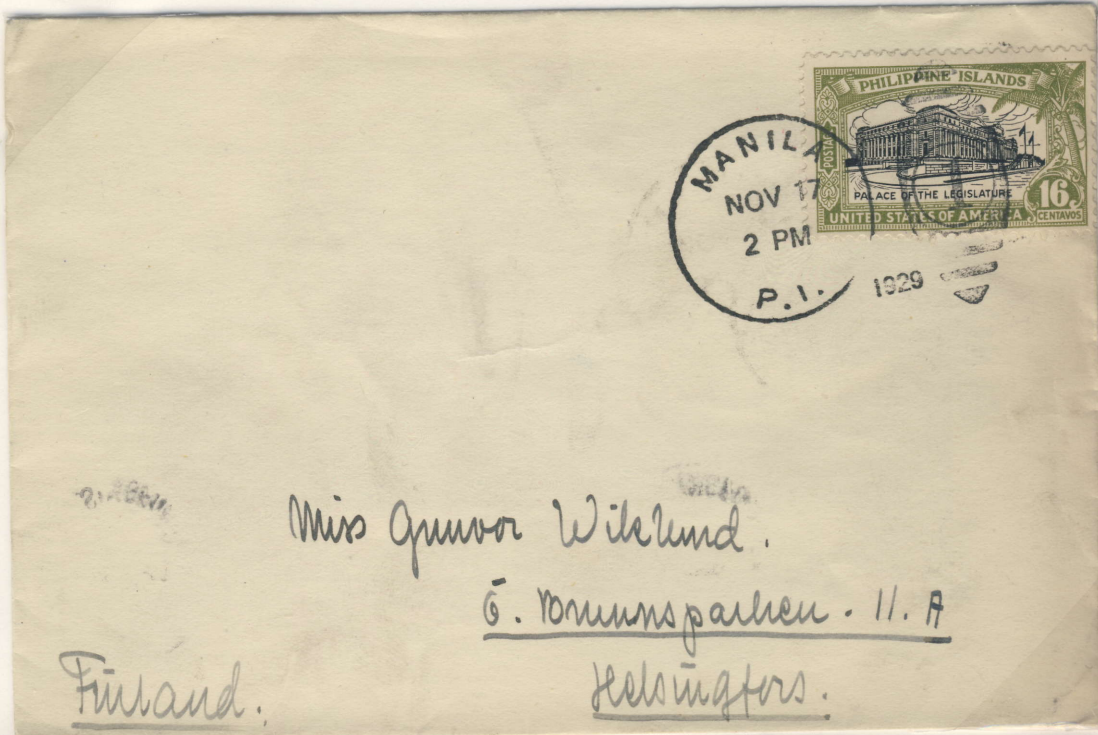 PHILIPPINE ISLANDS
POSTAGE
PALACE OF THE LEGISLATURE
16
CENTAVOS
UNITED STATES OF AMERICA
MANILA
NOV 17
2 PM
P.I.
1929
Miss Gunvor Wiklund.
Ö. Brunnsparken. 11. A
Helsingfors.
Finland.